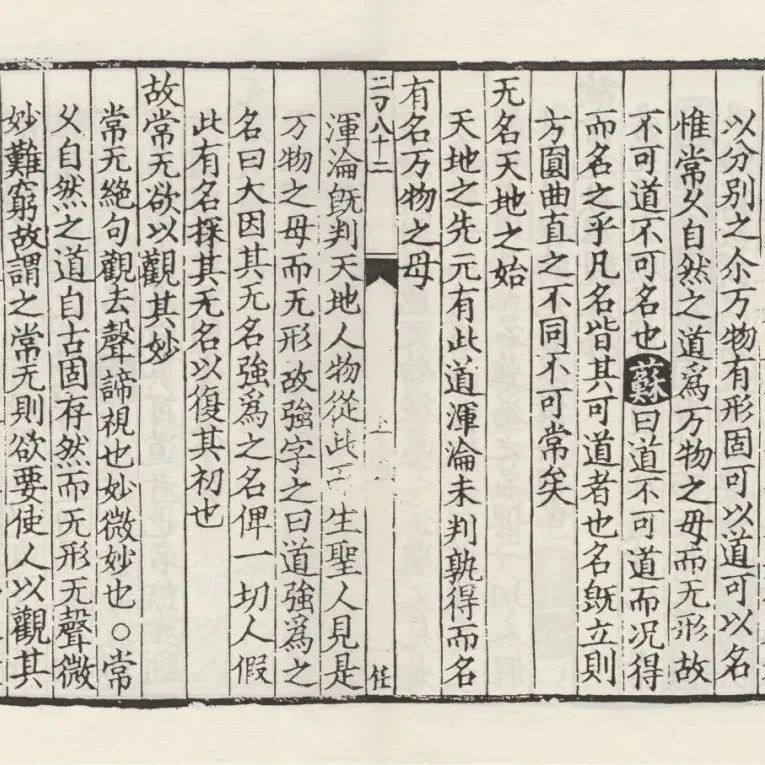 以分别之尒万物有形固可以道可以名
惟常久自然之道爲万物之母而无形故
不可道不可名也蘇曰道不可道而况得
而名之乎凡名皆其可道者也名旣立則
方圓曲直之不同不可常矣
无名天地之始
天地之先元有此道渾淪未判孰得而名
有名万物之母
八十二
任
渾淪旣判天地人物從此生聖人見是
万物之母而无形故強字之曰道強爲之
名曰大因其无名強爲之名俾一切人假
此有名探其无名以復其初也
故常无欲以觀其妙
常无絶句觀去聲諦視也妙微妙也○常
久自然之道自古固存然而无形无聲微
妙難窮故謂之常无則欲要使人以觀其